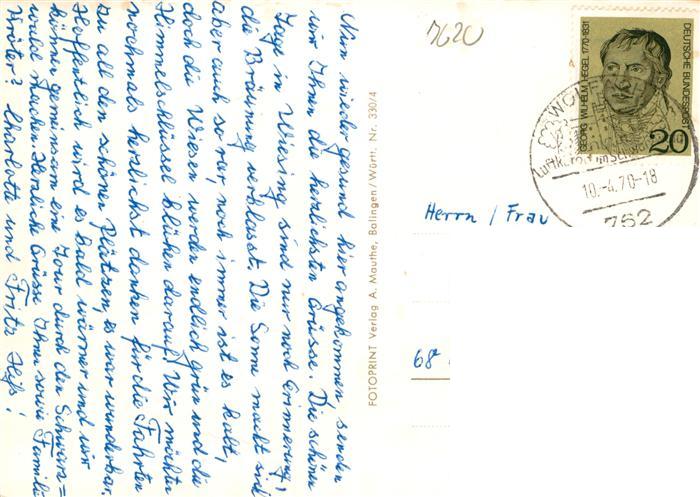 Nun wieder gesund hier angekommen senden
wir Ihnen die herzlichsten Grüsse. Die schönen
Tage in Wiesing sind nur noch Erinnerung,
die Bräunung verblasst. Die Sonne macht sich
aber auch so rar, noch immer ist es kalt,
doch die Wiesen werden endlich grün und die
Himmelschlüssel blühen darauf. Wir möchten
nochmals herzlichst danken für die Fahrten
zu all den schönen Plätzen, es war wunderbar.
Hoffentlich wird es bald wärmer und wir
können gemeinsam eine Tour durch den Schwarz=
wald machen. Herzliche Grüsse Ihnen sowie Familie
Kröter? Charlotte und Fritz Heß!
FOTOPRINT Verlag A. Mauthe, Balingen/Württ. Nr. 330/4
7620
DEUTSCHE BUNDESPOST
GEORG WILHELM HEGEL 1770-1831
20
WOLF
Luftkurort im Sch
10.-4.70-18
762
Herrn / Frau
68